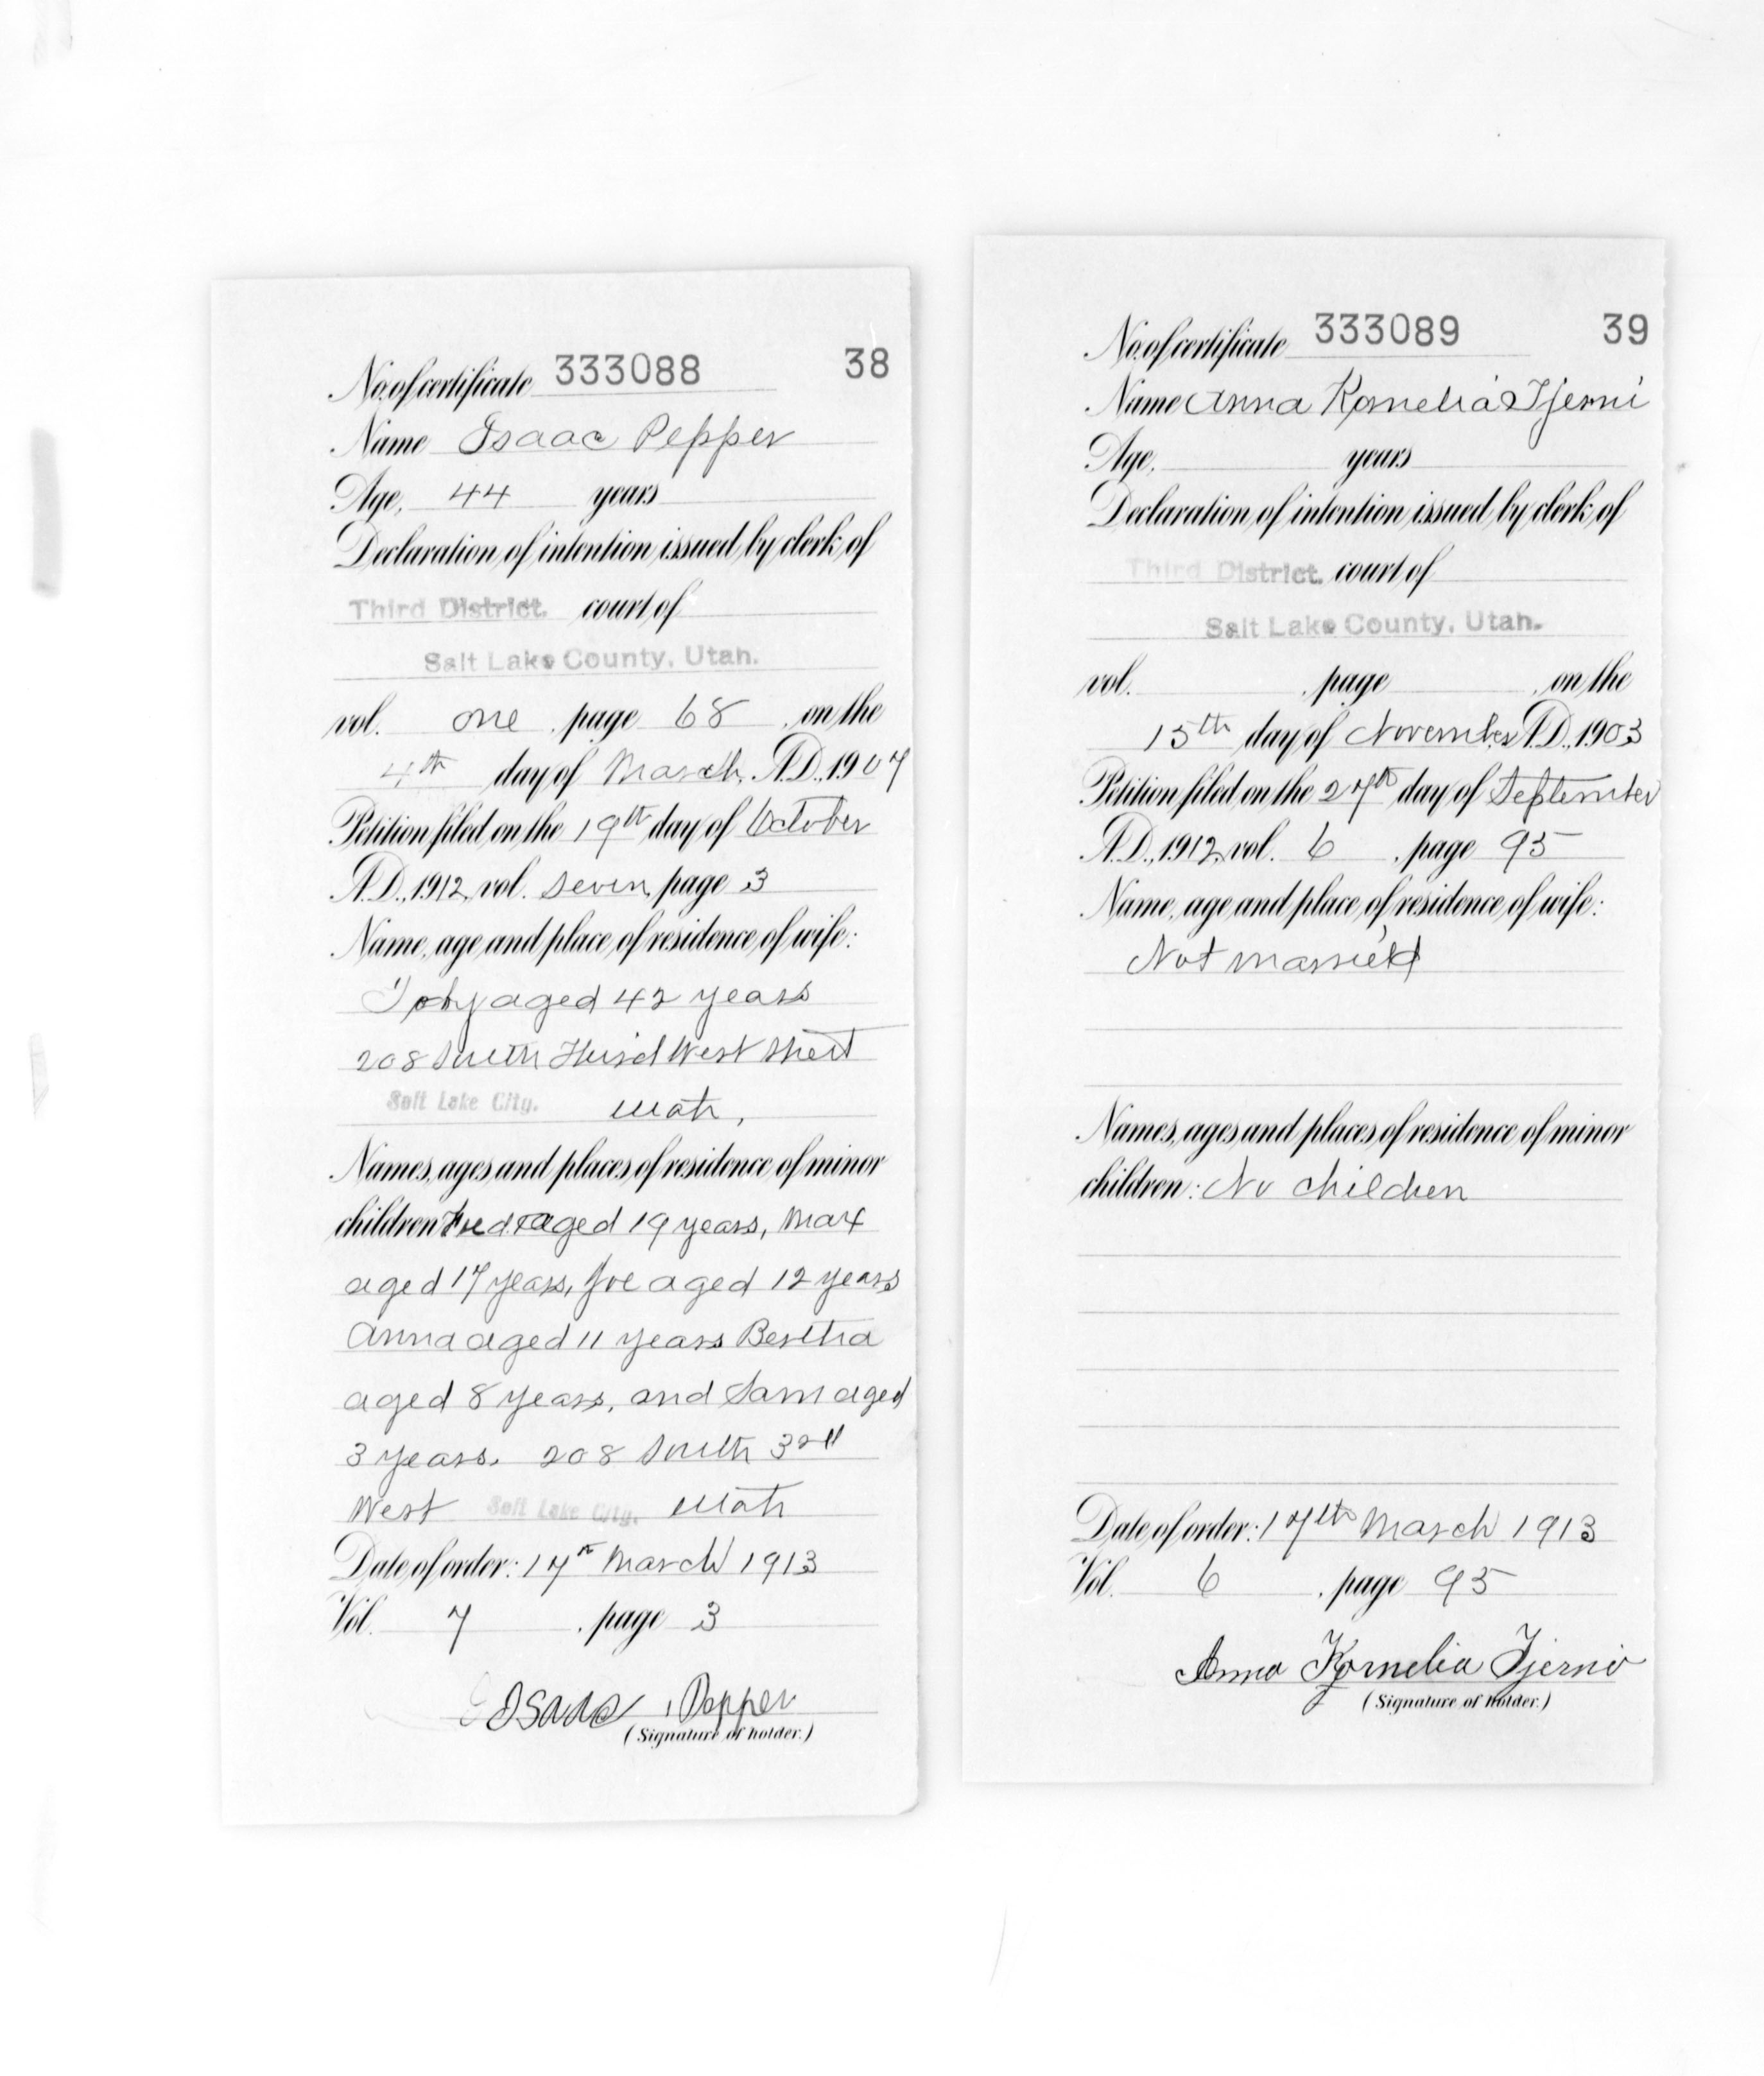 No. of certificate 333088 38
Name Isaac Pepper
Age, 44 years
Declaration of intention issued by clerk of
Third District. court of
Salt Lake County, Utah.
vol. one, page 68, on the
4th day of March, A.D., 1907
Petition filed on the 19th day of October
A.D., 1912, vol. Seven, page 3
Name, age and place of residence of wife:
aged 42 years
208 South Third West Street
Salt Lake City. Utah,
Names, ages and places of residence of minor
children aged 19 years, Max
aged 17 years, Joe aged 12 years
Anna aged 11 years Bertha
aged 8 years, and Sam aged
3 years. 208 South 3rd
West Salt Lake City. Utah
Date of order: 17th March 1913
Vol. 7, page 3
Isaac Pepper
(Signature of holder.)
No. of certificate 333089 39
Name Anna Kornelia Tjerni
Age, years
Declaration of intention issued by clerk of
Third District. court of
Salt Lake County, Utah.
vol. , page , on the
15th day of November A.D., 1903
Petition filed on the 27th day of September
A.D., 1912, vol. 6, page 95
Name, age and place of residence of wife:
Not married
Names, ages and places of residence of minor
children: No children
Date of order: 17th March 1913
Vol. 6, page 95
Anna Kornelia Tjerni
(Signature of holder.)